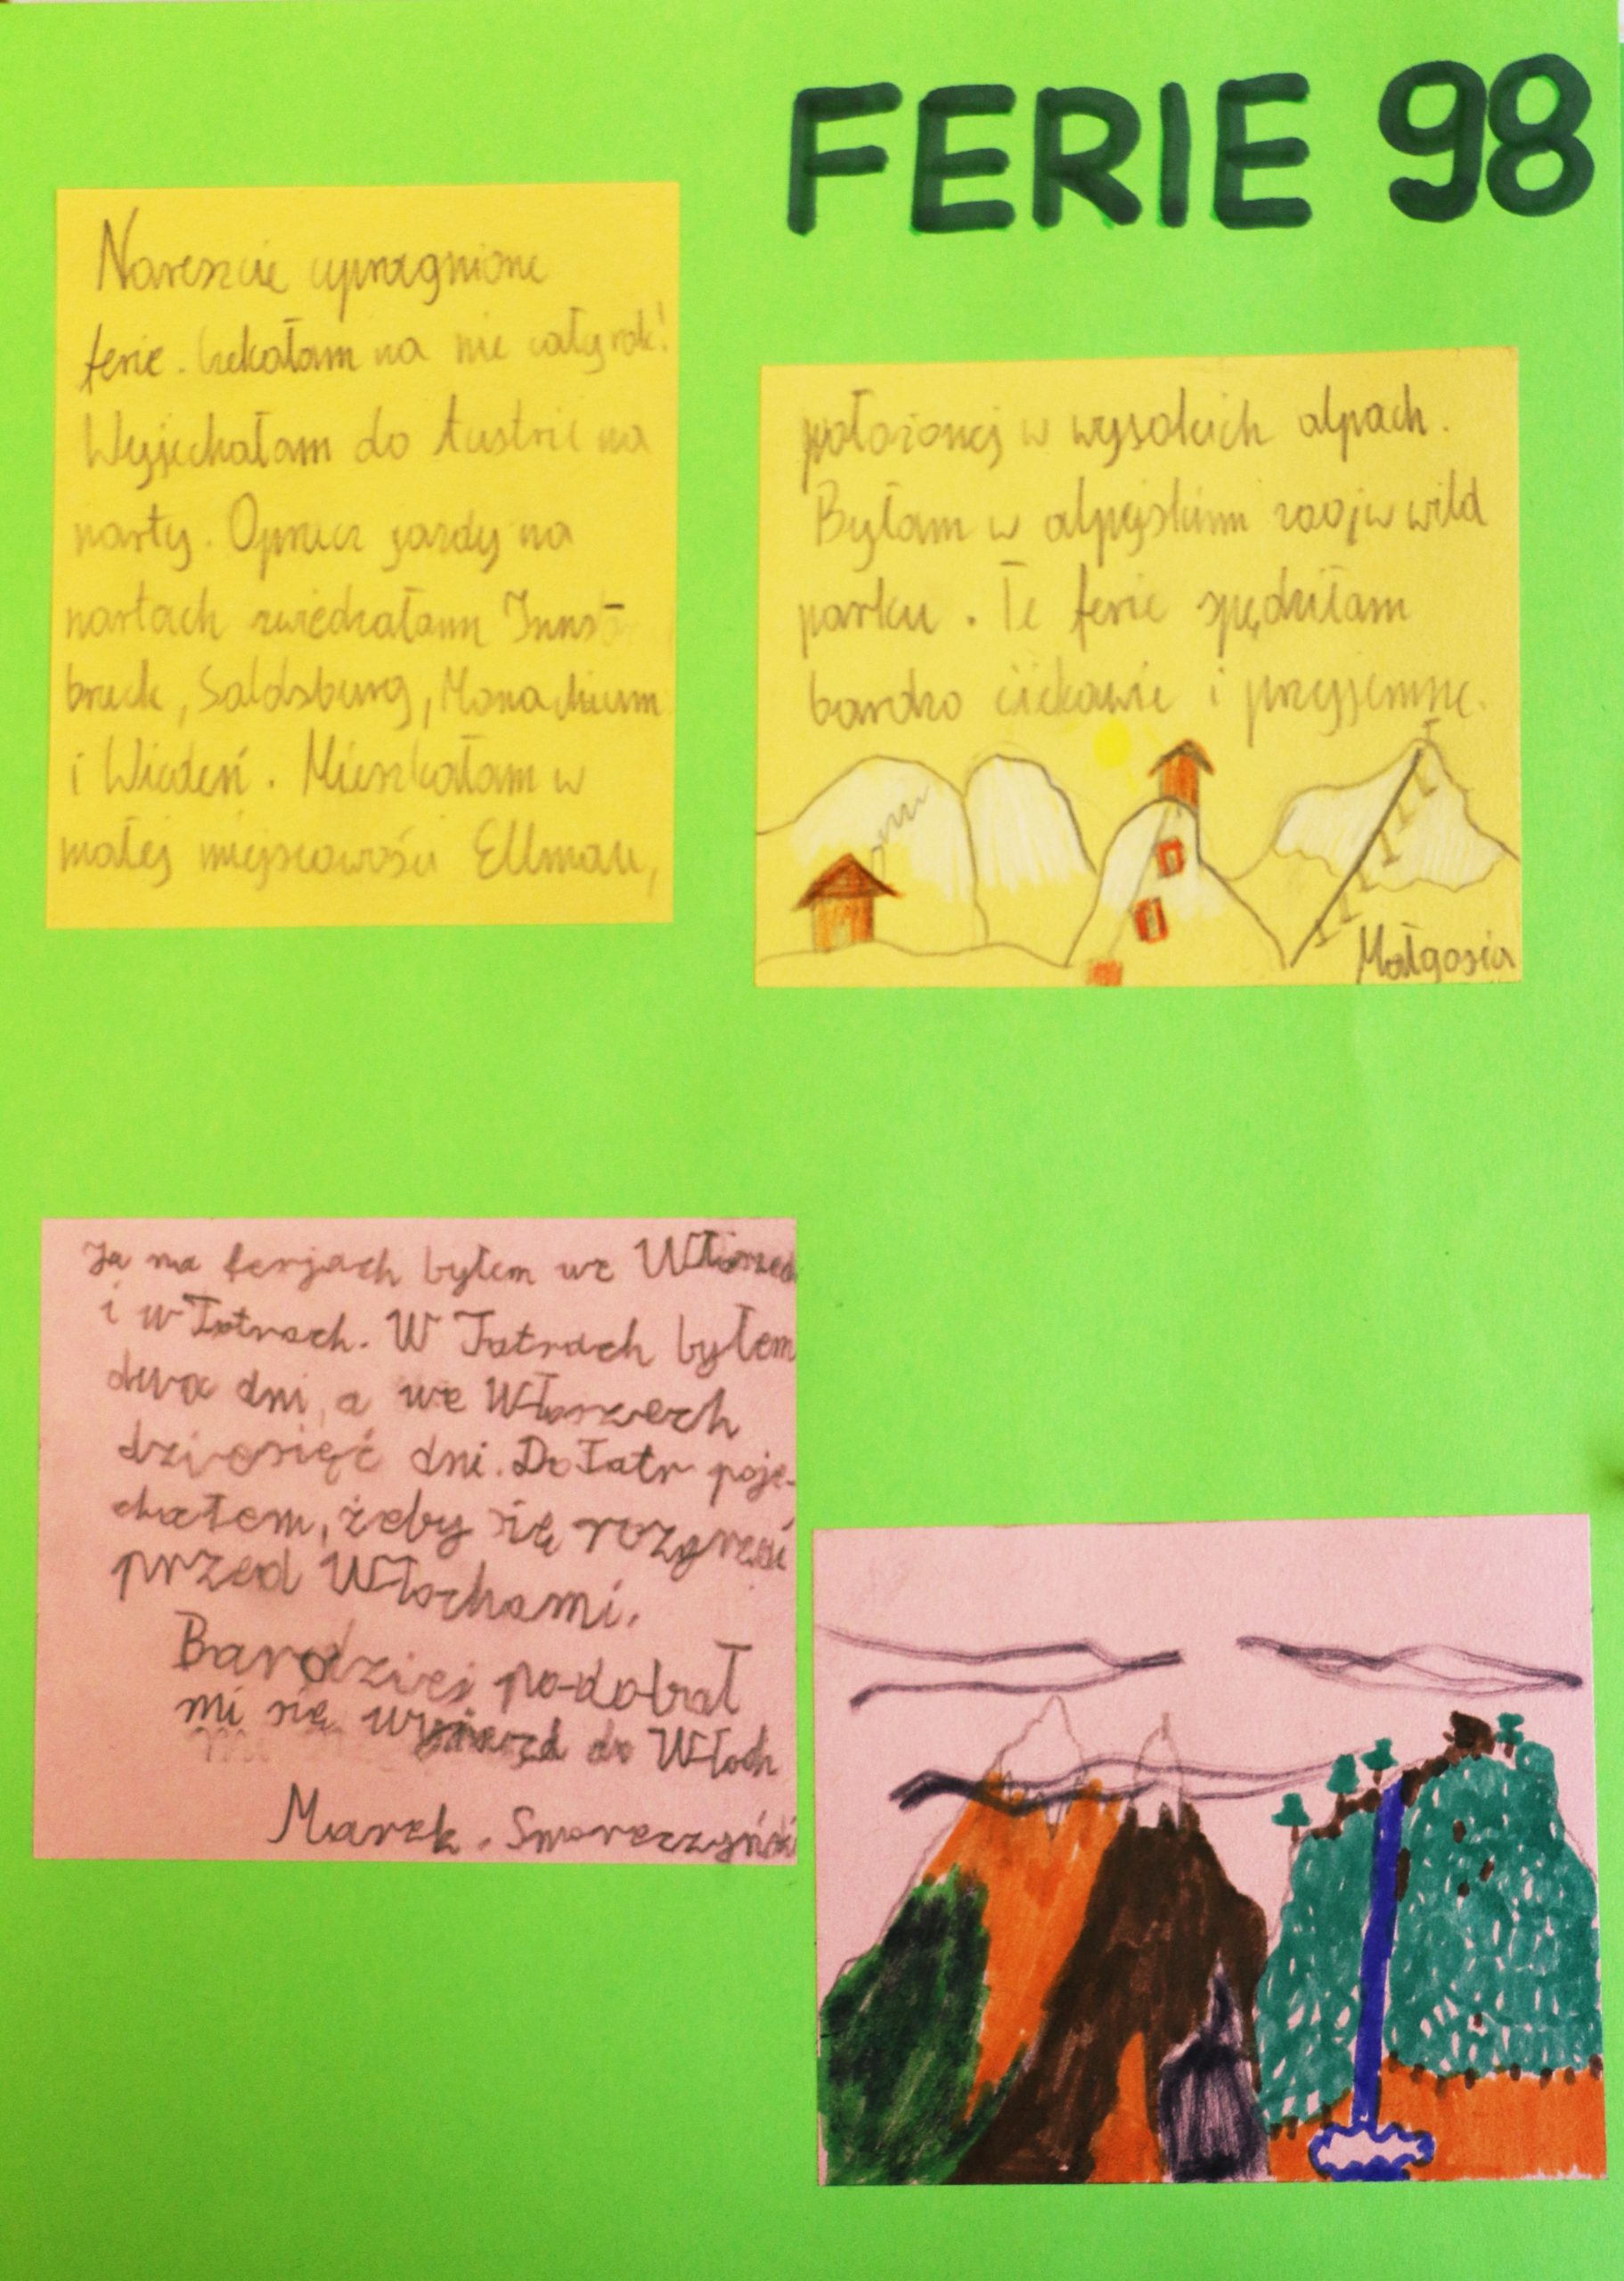 FERIE 98
Nareszcie upragnione
ferie. Czekałam na nie cały rok!
Wyjechałam do Austrii na
narty. Oprucz jazdy na
nartach zwiedzałam Inns-
bruck, Saldsburg, Monachium
i Wiedeń. Mieszkałam w
małej miejscowości Ellmau,
położonej w wysokich alpach.
Byłam w alpejskim zoo j w wild
parku. Te ferie spędziłam
bardzo ciekawie i przyjemnie.
Małgosia
Ja na ferjach byłem we Włoszech
i w Tatrach. W Tatrach byłem
dwa dni, a we Włoszech
dziesięć dni. Do Tatr poje-
chałem, żeby się rozgrzać
przed Włochami.
Bardziej podobał
mi się wyjazd do Włoch
Marek